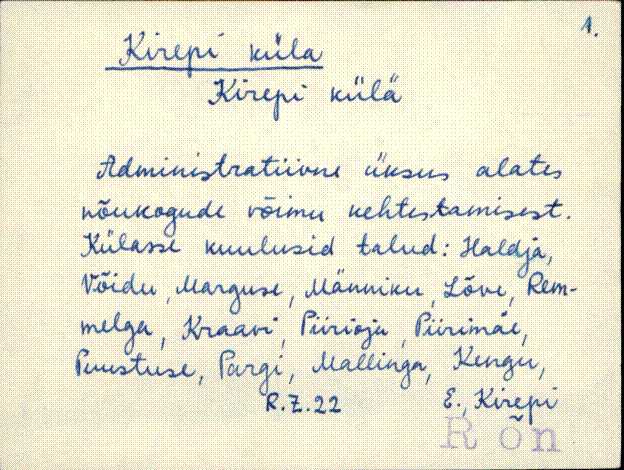 1.
Kirepi küla
Kirepi külä
Administratiivne üksus alates
nõukogude võimu kehtestamisest.
Külasse kuulusid talud: Haldja,
Võidu, Marguse, Männiku, Lõve, Rem-
melga, Kraavi, Piirioja, Piirimäe,
Puustuse, Pargi, Mallinga, Kengu,
R.Z.22 E., Kirepi
Rõn